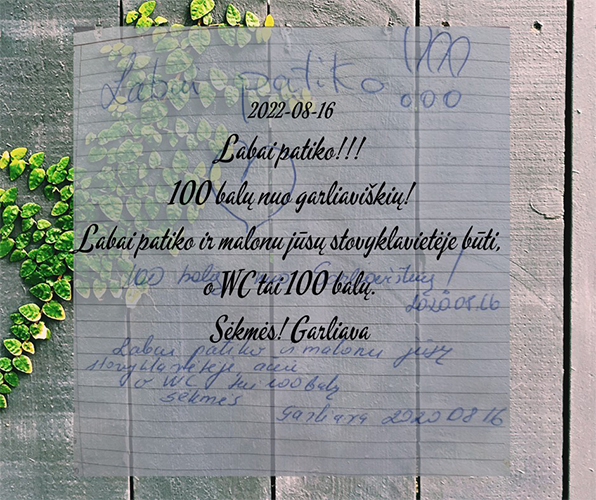 Labai patiko !!!
2022-08-16
Labai patiko!!!
100 balų nuo garliaviškių!
Labai patiko ir malonu jūsų stovyklavietėje būti,
100 balų nuo Garliaviškių!
o WC tai 100 balų.
2020 08.16
Sėkmės! Garliava
Labai patiko ir malonu jūsų
stovyklavietėje,
o WC tai 100 balų
sėkmės
Garliava 2020 08 16